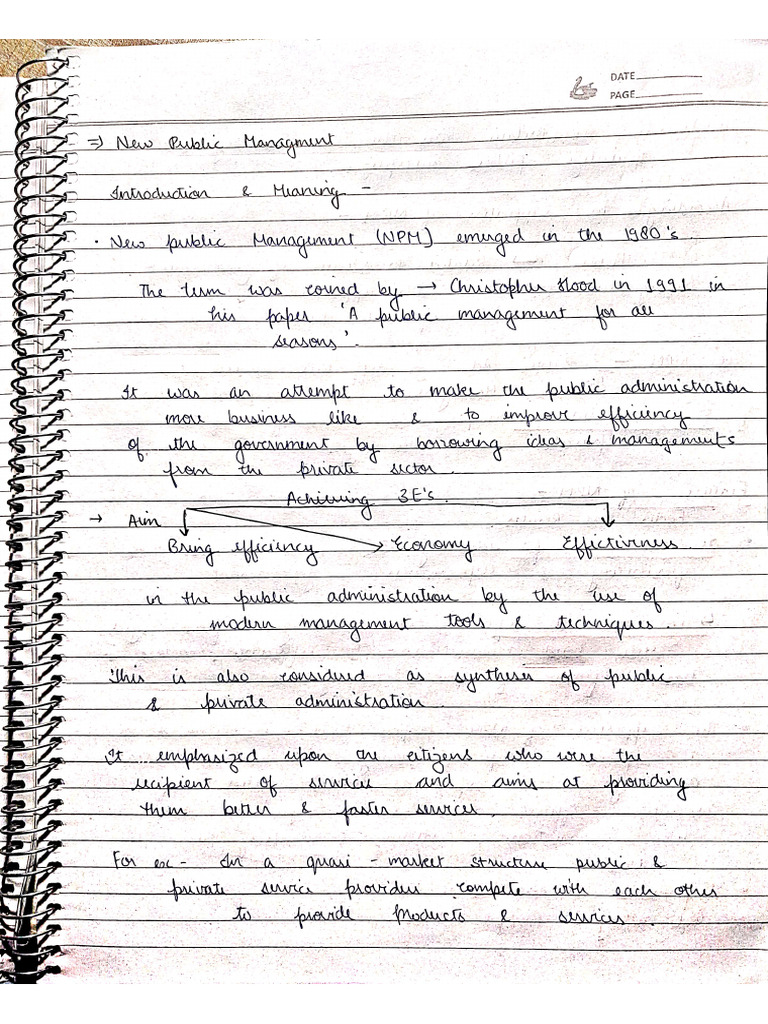 DATE
PAGE
⇒ New Public Managment
Introduction & Meaning -
· New public Management (NPM) emerged in the 1980's.
The term was coined by → Christopher Hood in 1991 in
his paper 'A public management for all
seasons'.
It was an attempt to make the public administration
more business like & to improve efficiency
of the government by borrowing ideas & managements
from the private sector.
Achieving 3E's.
→ Aim
Bring efficiency → Economy Effectiveness
in the public administration by the use of
modern management tools & techniques.
This is also considered as syntheses of public
& private administration.
It emphasized upon the citizens who were the
recipient of services and aims at providing
them better & faster services.
For ex - In a quasi - market structure public &
private service providers compete with each other
to provide Products & services.